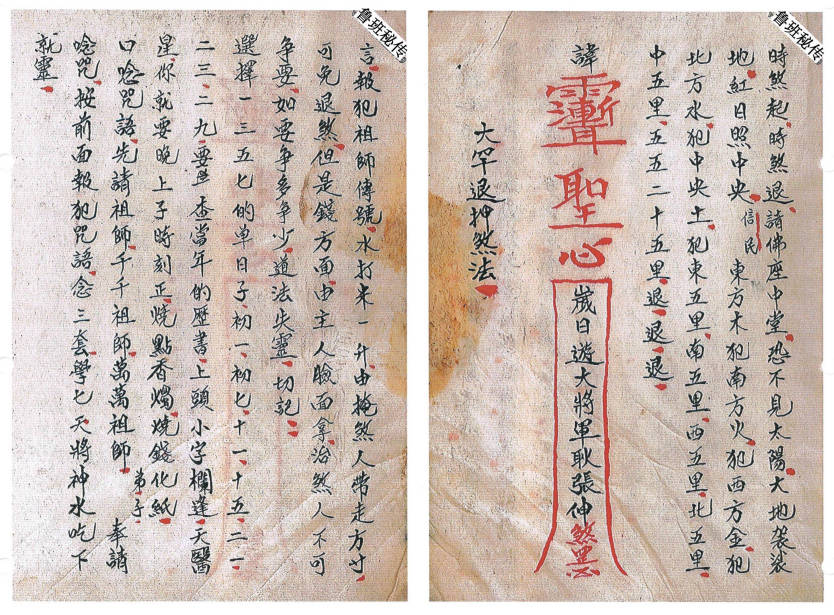 鲁班秘传
時煞起時煞退請佛座中堂恐不見太陽大地袈裟
地紅日照中央信民東方木犯南方火犯西方金犯
北方水犯中央土犯東五里南五里西五里北五里
中五里五五二十五里退退退
諱聖心歲日遊大將軍耿張伸煞
大罕退押煞法
鲁班秘传
言報犯祖師傳號水打米一升由掩煞人帶走方寸
可免退煞但是錢方面由主人臉面拿治煞人不可
爭要如要爭多爭少道法失靈切記
選擇一三五七的单日子初一初七十一十五二一
二三二九要查當年的歷書上頭小字欄逢天醫
星你就要晚上子時刻正燒點香燭燒錢化紙
口唸咒語先請祖師千千祖師萬萬祖師弟子奉請
唸咒按前面報犯咒語念三套學七天將神水吃下
就靈